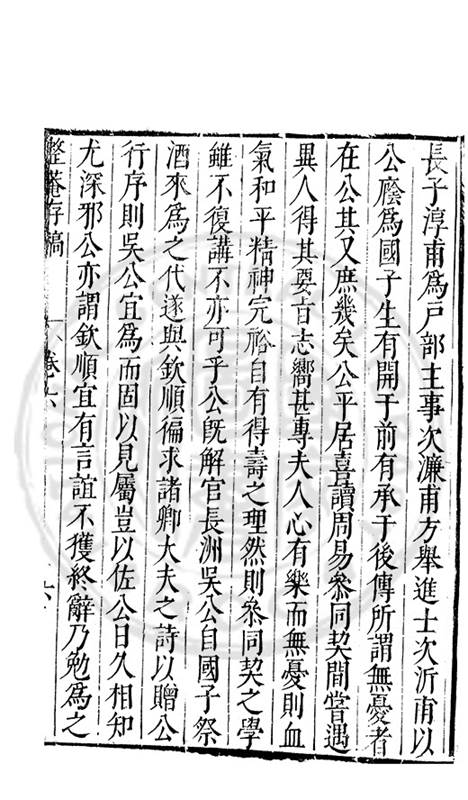 長子淳甫爲戸部主事次濂甫方舉進士次沂甫以
公廕爲國子生有開于前有承于後傳所謂無憂者
在公其又庶幾矣公平居喜讀周易叅同契間嘗遇
異人得其要旨志嚮甚專夫人心有樂而無憂則血
氣和平精神完裕自有得壽之理然則叅同契之學
雖不復講不亦可乎公旣解官長洲吳公自國子祭
酒來爲之代遂與欽順徧求諸卿大夫之詩以贈公
行序則吳公宜爲而固以見屬豈以佐公日久相知
尤深邪公亦謂欽順宜有言誼不獲終辭乃勉爲之
整菴存稿 卷六